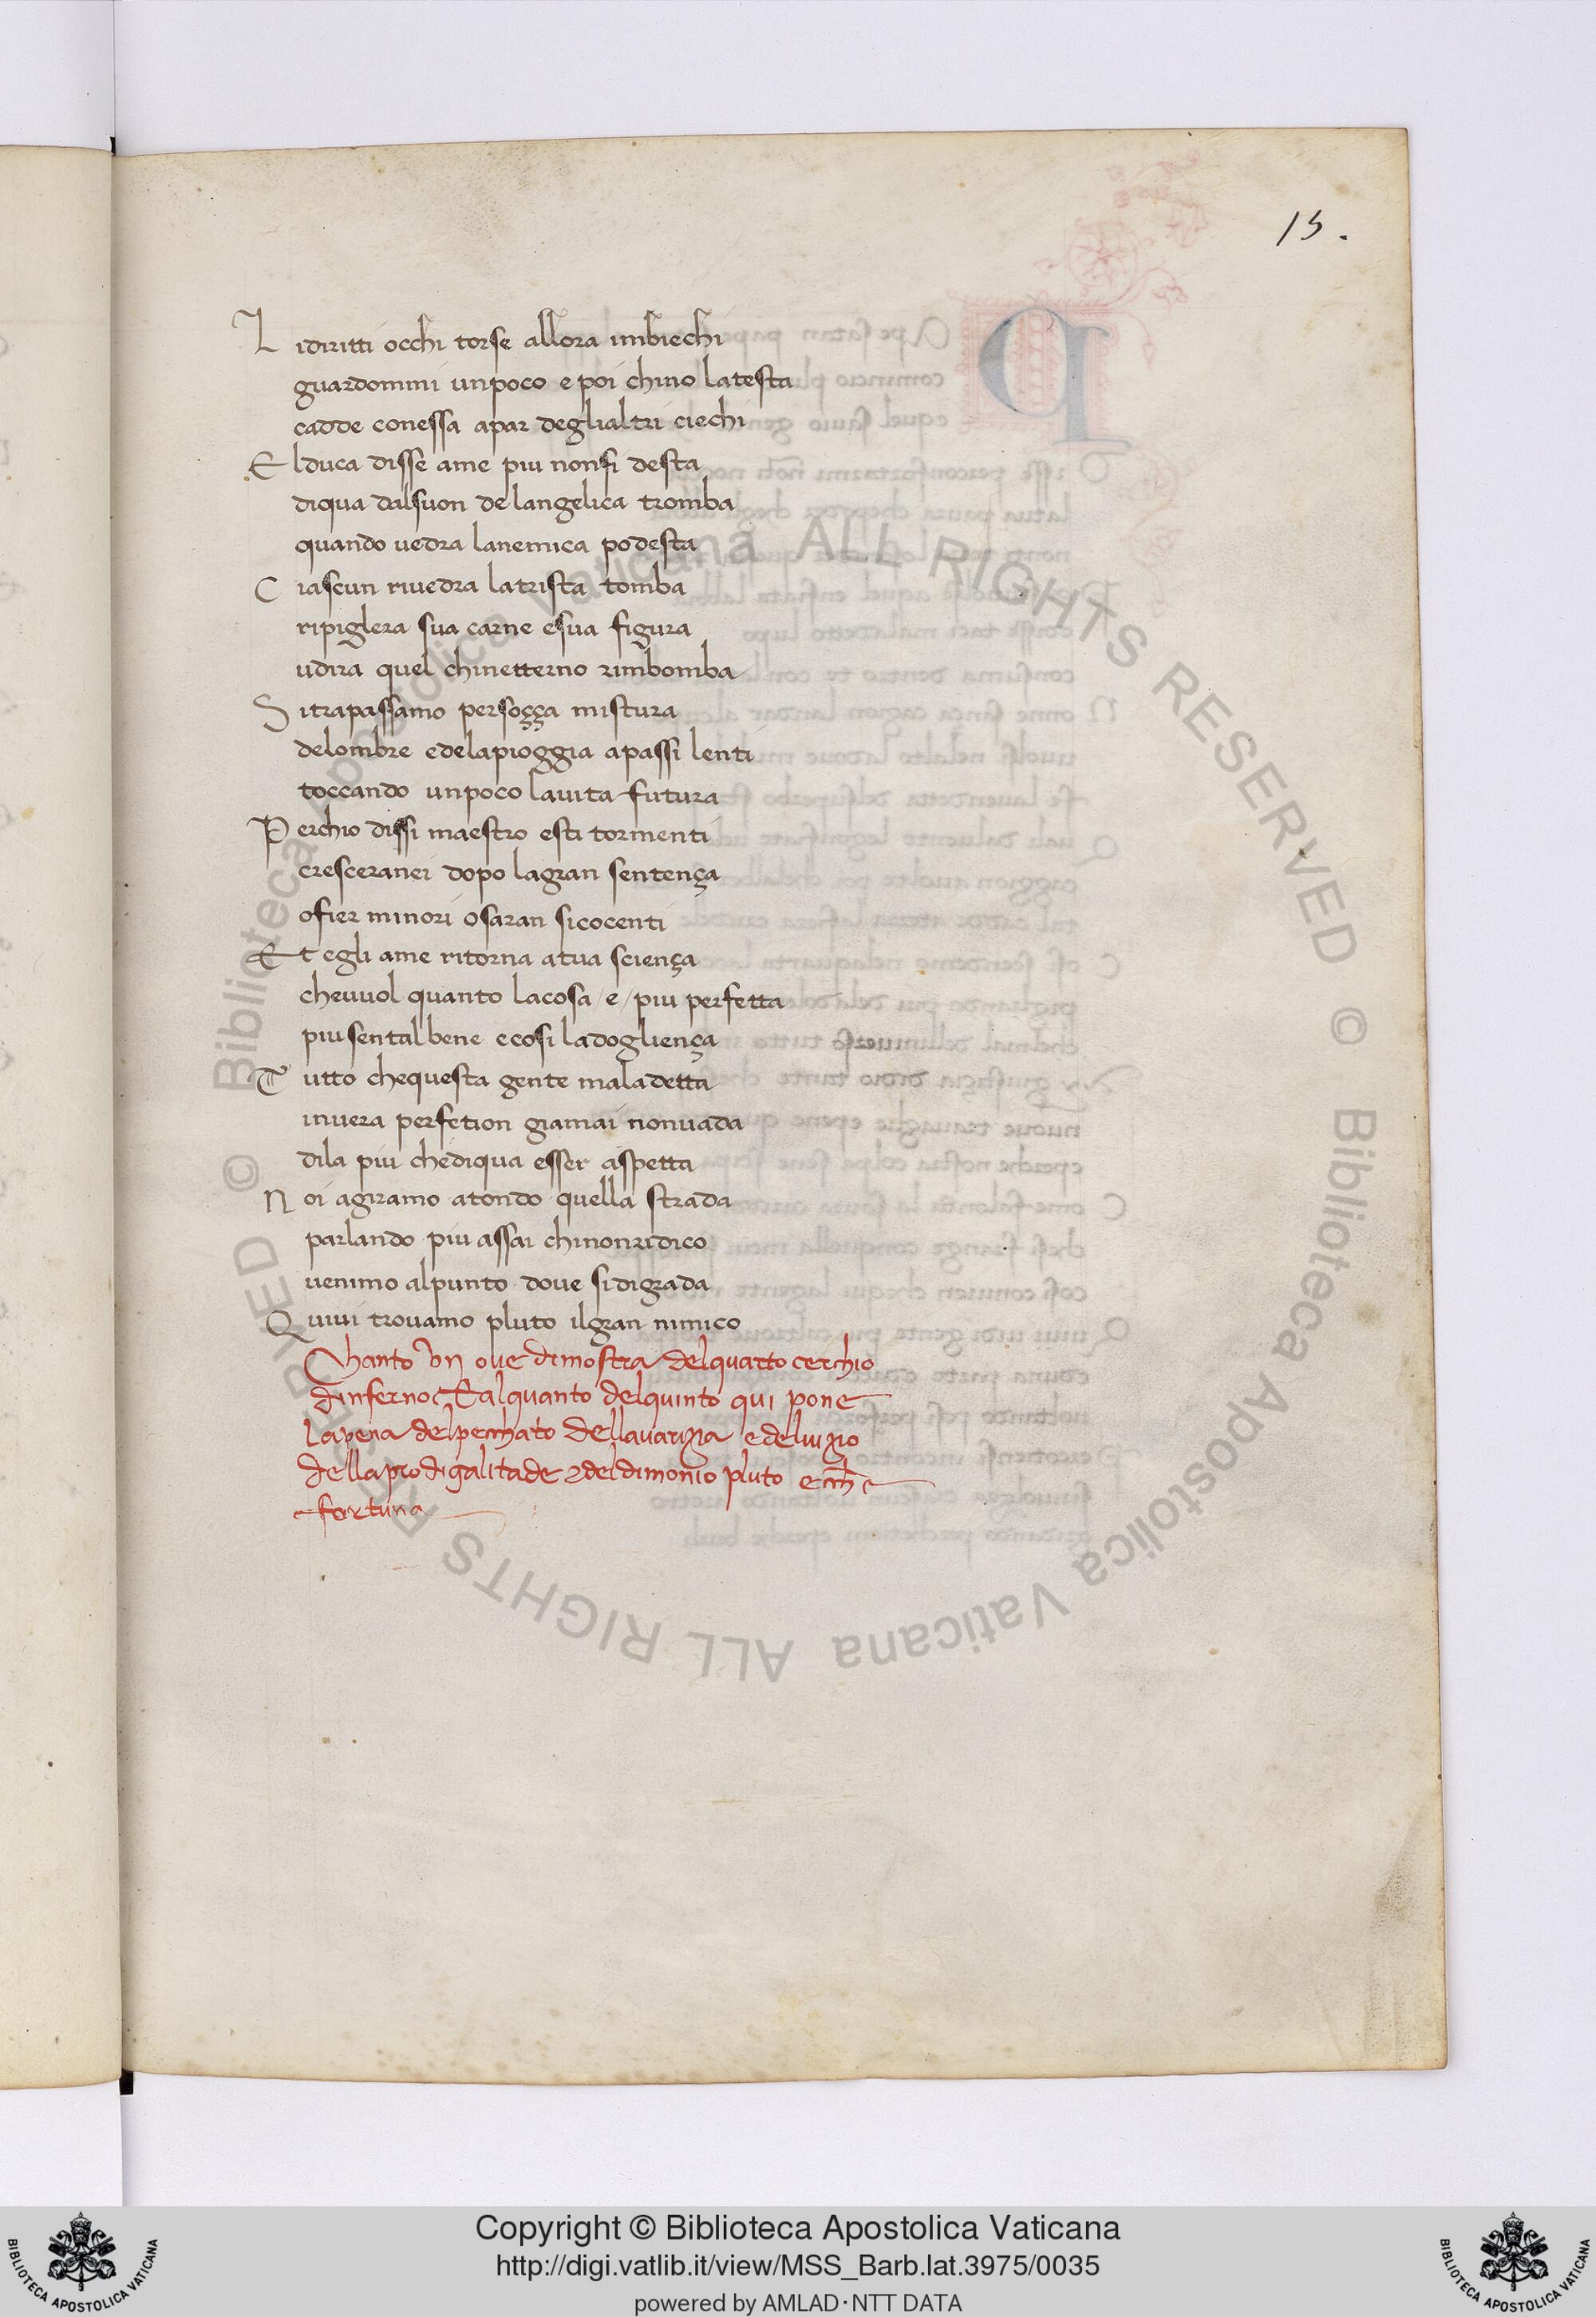 15.
L idiritti occhi torse allora imbiechi
guardommi unpoco e poi chino latesta
cadde conessa apar deglialtri ciechi
E lduca disse ame piu nonsi desta
diqua dalsuon de langelica tromba
quando uedra lanemica podesta
C iascun riuedra latrista tomba
ripiglera sua carne esua figura
udira quel chinetterno rimbomba
S itrapassamo persoçça mistura
delombre edelapioggia apassi lenti
toccando unpoco lauita futura
P erchio dissi maestro esti tormenti
cresceranei dopo lagran sentença
ofier minori osaran sicocenti
E t egli ame ritorna atua sciença
cheuuol quanto lacosa / e / piu perfetta
piusentalbene ecosi ladogliença
T utto chequesta gente maladetta
inuera perfetion giamai nonuada
dila piu chediqua esser aspetta
N oi agiramo atondo quella strada
parlando piu assai chinonridico
uenimo alpunto doue sidigrada
Q uiui trouamo pluto ilgran nimico
Chanto vii oue dimostra delquarto cerchio
dinferno Et alquanto delquinto qui pone
lapena delpecchato dellauarizia edeluizio
dellaprodigalitade edeldimonio pluto e
fortuna
Copyright © Biblioteca Apostolica Vaticana
http://digi.vatlib.it/view/MSS_Barb.lat.3975/0035
powered by AMLAD·NTT DATA
BIBLIOTECA APOSTOLICA VATICANA
BIBLIOTECA APOSTOLICA VATICANA
© Biblioteca Apostolica Vaticana ALL RIGHTS RESERVED
© Biblioteca Apostolica Vaticana ALL RIGHTS RESERVED